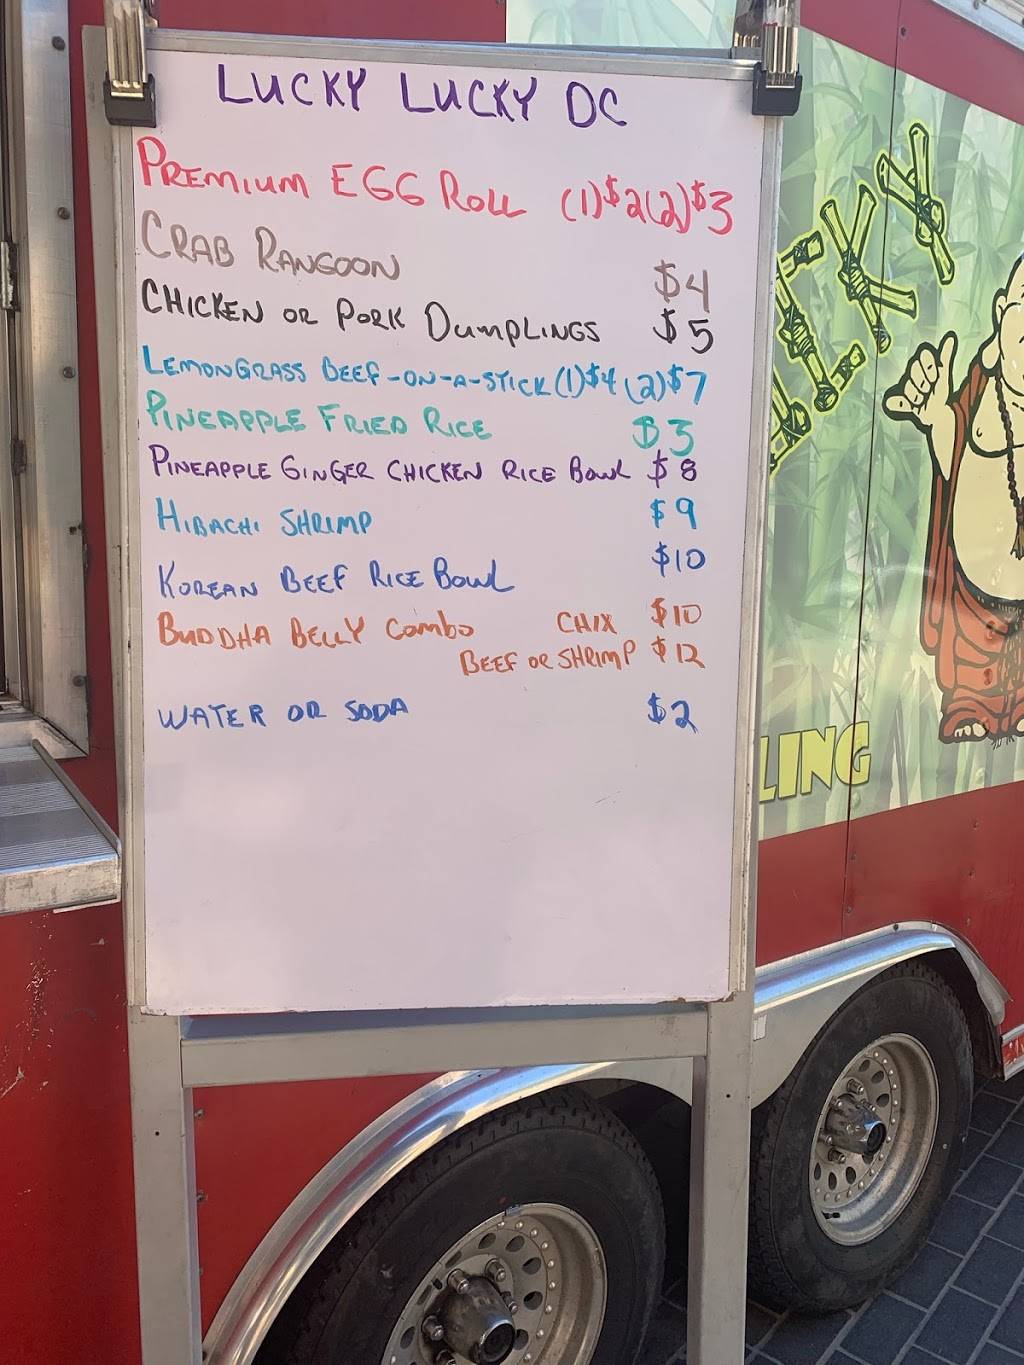 LUCKY LUCKY DC
PREMIUM EGG ROLL (1)$2(2)$3
CRAB RANGOON $4
CHICKEN OR PORK DUMPLINGS $5
LEMONGRASS BEEF-ON-A-STICK(1)$4 (2)$7
PINEAPPLE FRIED RICE $3
PINEAPPLE GINGER CHICKEN RICE BOWL $8
HIBACHI SHRIMP $9
KOREAN BEEF RICE BOWL $10
BUDDHA BELLY COMBO CHIX $10
BEEF OR SHRIMP $12
WATER OR SODA $2
LING